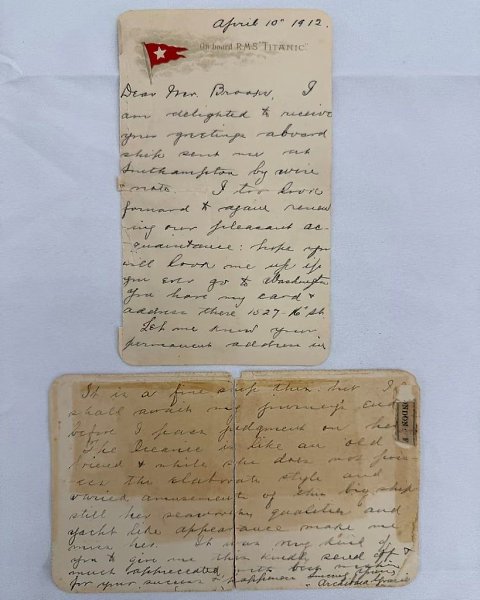 April 10th 1912.
On board R.M.S. "TITANIC"
Dear Mr. Brooks, I
am delighted to receive
your greetings aboard
ship sent me at
Southampton by wire
& note. I too look
forward to again renew
ing our pleasant ac-
quaintance: hope you
will look me up if
you ever go to Washington
You have my card &
address there 1527-16th St
Let me know your
permanent address in
It is a fine ship but I
shall await my journeys end
before I pass judgment on her.
The Oceanic is like an old
friend & while she does not pos-
sess the elaborate style and
varied amusements of this big ship
still her seaworthy qualities and
yacht like appearance make me
miss her. It was very kind of
you to give me this kindly send off &
much appreciated with best wishes
for your success & happiness
Archibald Gracie